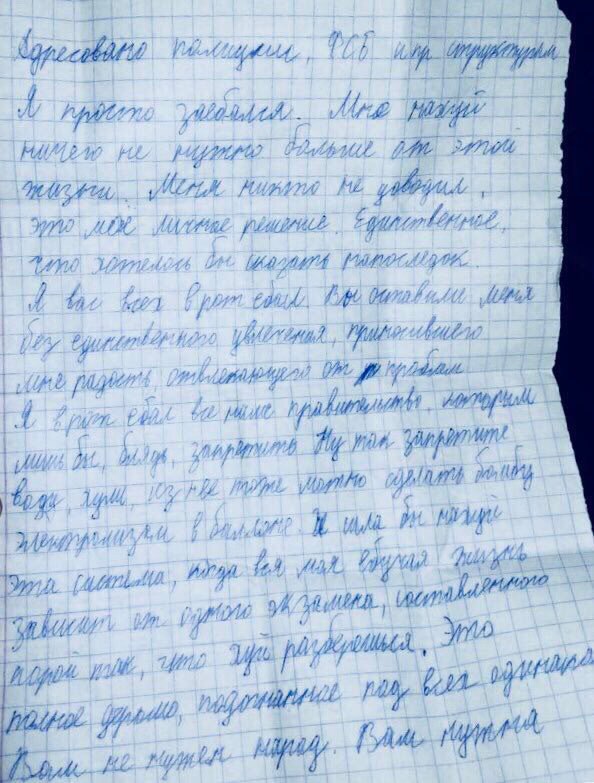 Адресовано полиции, ФСБ и пр структурам
Я просто заебался. Мне нахуй
ничего не нужно больше от этой
жизни. Меня никто не доводил,
это моё личное решение. Единственное,
что хотелось бы сказать напоследок.
Я вас всех в рот ебал. Вы оставили меня
без единственного увлечения, приносившего
мне радость, отвлекающего от проблем
Я в рот ебал все наше правительство, которым
лишь бы, блядь, запретить. Ну так запретите
воду, хули, из нее тоже можно сделать бомбу
электролизом в баллоне. И шла бы нахуй
эта система, когда вся моя ебучая жизнь
зависит от одного экзамена, составленного
порой так, что хуй разберешься. Это
полное дерьмо, подогнанное под всех одинаково
Вам не нужен народ. Вам нужна